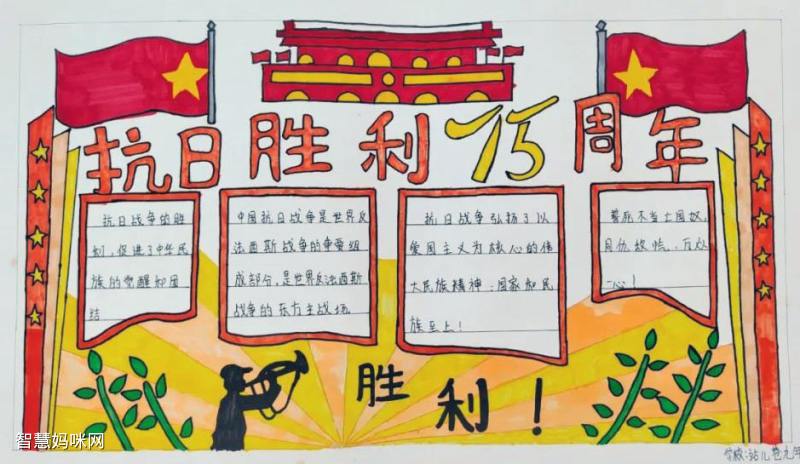 抗日胜利75周年
抗日战争的胜
利，促进了中华民
族的觉醒和团
结
中国抗日战争是世界反
法西斯战争的重要组
成部分，是世界反法西斯
战争的东方主战场
抗日战争弘扬了以
爱国主义为核心的伟
大民族精神：国家和民
族至上！
誓死不当亡国奴，
同仇敌忾，万众
一心！
胜利！
智慧妈咪网
学校:站儿巷九年